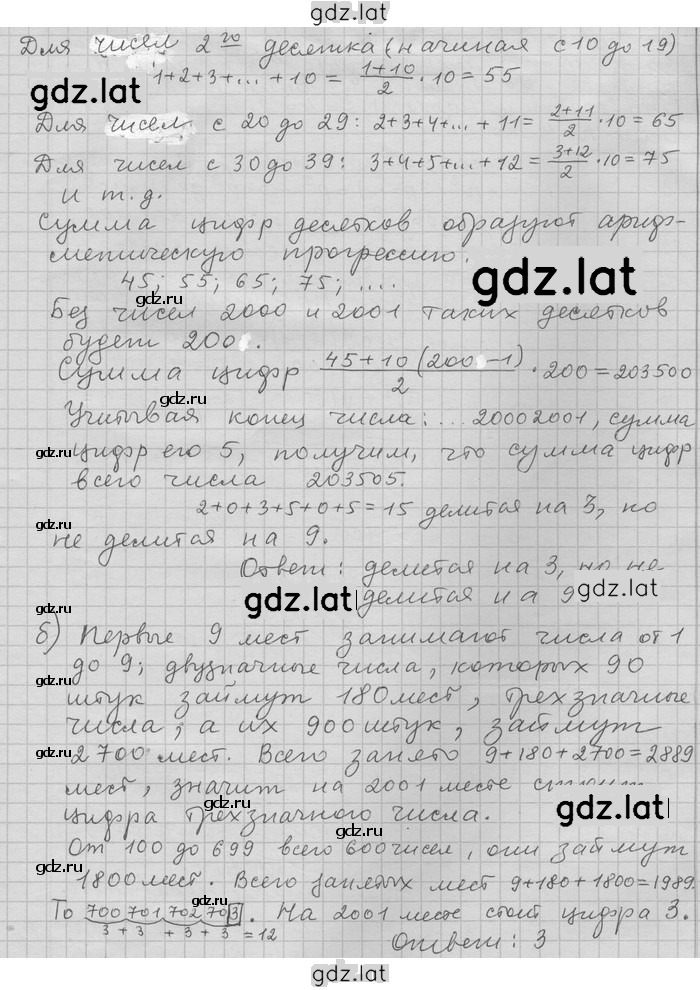 gdz.lat
Для чисел 2го десятка (начиная с 10 до 19)
1+2+3+...+10 = (1+10)/2 · 10 = 55
gdz.lat
Для чисел с 20 до 29: 2+3+4+...+11 = (2+11)/2 · 10 = 65
Для чисел с 30 до 39: 3+4+5+...+12 = (3+12)/2 · 10 = 75
и т.д.
Сумма цифр десятков образуют ариф-
метическую прогрессию.
gdz.lat
45; 55; 65; 75; ....
gdz.ru
Без чисел 2000 и 2001 таких десятков
будет 200.
gdz.ru
Сумма цифр (45+10(200-1))/2 · 200 = 203500
Учитывая конец числа: ...20002001, сумма
gdz.ru
цифр его 5, получим, что сумма цифр
gdz.ru
всего числа 203505.
2+0+3+5+0+5=15 делится на 3, но
gdz.ru
не делится на 9.
Ответ: делится на 3, но не
gdz.lat
делится на 9
gdz.ru
б) Первые 9 мест занимают числа от 1
gdz.ru
до 9; двузначные числа, которых 90
штук займут 180 мест, трехзначные
числа, а их 900 штук, займут
gdz.ru
2700 мест. Всего занято 9+180+2700=2889
мест, значит на 2001 месте стоит
gdz.lat
gdz.ru
цифра трехзначного числа.
От 100 до 699 всего 600 чисел, они займут
gdz.ru
1800 мест. Всего занятых мест 9+180+1800=1989.
gdz.ru
То 700 701 702 703. На 2001 месте стоит цифра 3.
3 + 3 + 3 + 3 = 12
Ответ: 3
gdz.lat